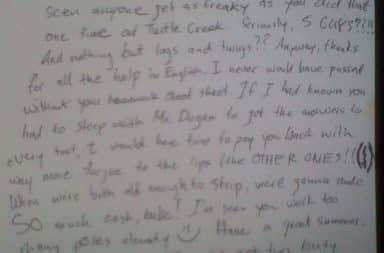 seen anyone get as freaky as you did that
one time at Turtle Creek. Seriously, 5 guys????!!
And nothing but logs and twigs?? Anyway, thanks
for all the help in English. I never would have passed
without your homework cheat sheet. If I had known you
had to sleep with Mr. Dugan to get the answers to
every test, I would have to pay you back with
way more to the lips like OTHER ONES!!
When were both old enough to strip, were gonna make
SO much cash, babe! I've seen you work too
many poles already Have a good summer,